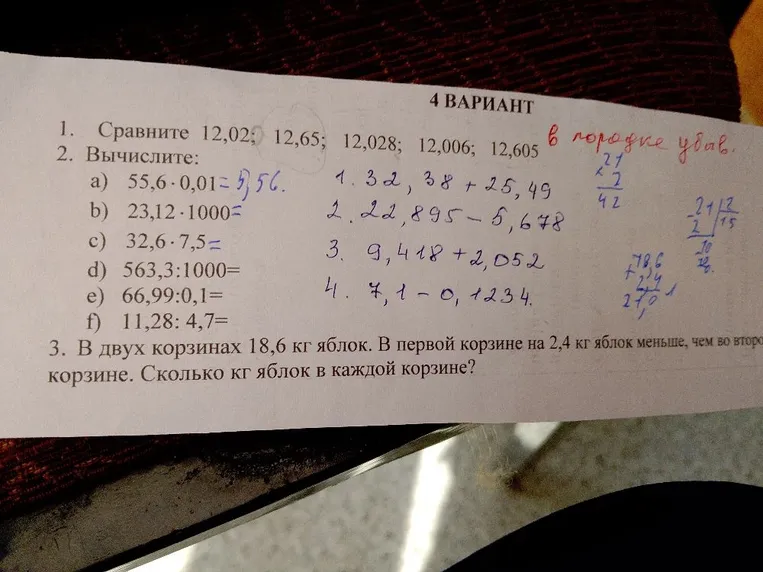 4 ВАРИАНТ
1. Сравните 12,02; 12,65; 12,028; 12,006; 12,605 в порядке убыв.
2. Вычислите:
a) 55,6·0,01=5,56.
b) 23,12·1000=
c) 32,6·7,5=
d) 563,3:1000=
e) 66,99:0,1=
f) 11,28: 4,7=
1. 32,38+25,49
2. 22,895-5,678
3. 9,418+2,052
4. 7,1-0,1234.
21
× 2
42
21 2
2 15
10
18,6
+ 2,4
21,0
3. В двух корзинах 18,6 кг яблок. В первой корзине на 2,4 кг яблок меньше, чем во второ
корзине. Сколько кг яблок в каждой корзине?